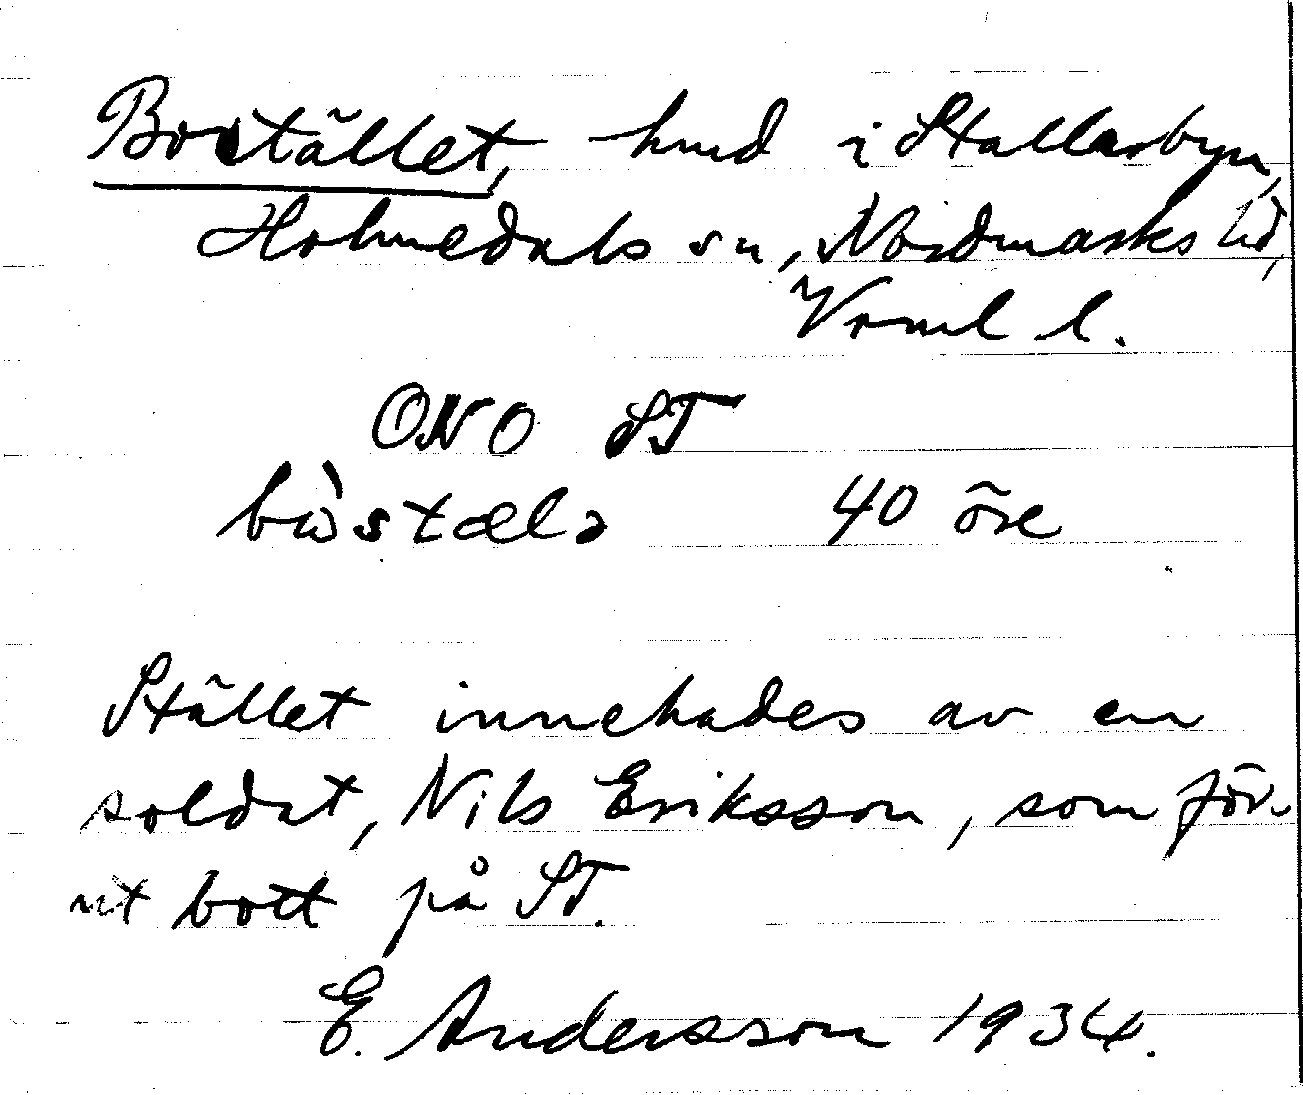 Bostället, hmd i Stallarbyn,
Holmedals sn, Nordmarks hd,
Värml l.
ONO ST
bòstælə 40 öre
Stället innehades av en
soldat, Nils Eriksson, som för-
ut bott på ST.
E. Andersson 1934.